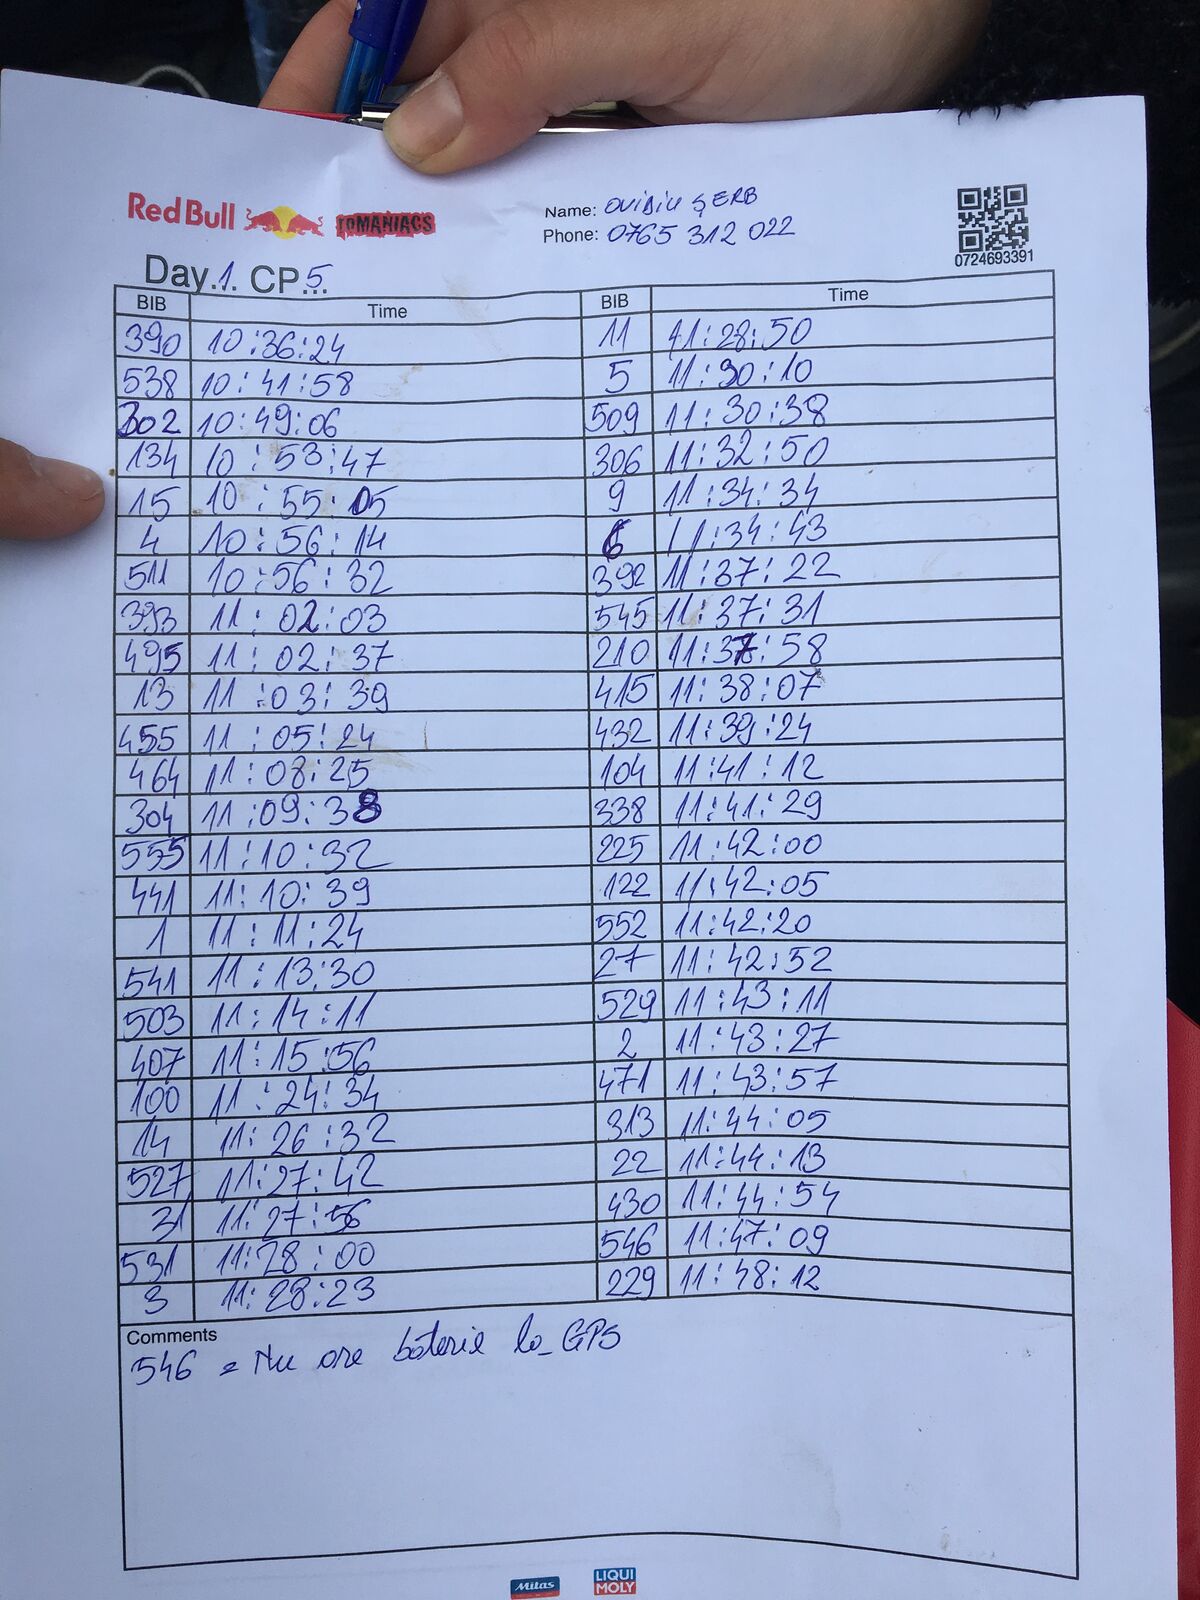 Red Bull ROMANIACS
Name: OVIDIU ȘERB
Phone: 0765 312 022
0724693391
Day.1. CP 5...
BIB Time BIB Time
390 10:36:24 11 11:28:50
538 10:41:58 5 11:30:10
302 10:49:06 509 11:30:38
134 10:53:47 306 11:32:50
15 10:55:05 9 11:34:34
4 10:56:14 6 11:34:43
511 10:56:32 392 11:37:22
393 11:02:03 545 11:37:31
495 11:02:37 210 11:37:58
13 11:03:39 415 11:38:07
455 11:05:24 432 11:39:24
464 11:08:25 104 11:41:12
304 11:09:38 338 11:41:29
555 11:10:32 225 11:42:00
441 11:10:39 122 11:42:05
1 11:11:24 552 11:42:20
541 11:13:30 27 11:42:52
503 11:14:11 529 11:43:11
407 11:15:56 2 11:43:27
100 11:24:34 471 11:43:57
14 11:26:32 313 11:44:05
527 11:27:42 22 11:44:13
31 11:27:56 430 11:44:54
531 11:28:00 546 11:47:09
3 11:28:23 229 11:48:12
Comments
546 = Nu are baterie la GPS
Mitas
LIQUI
MOLY